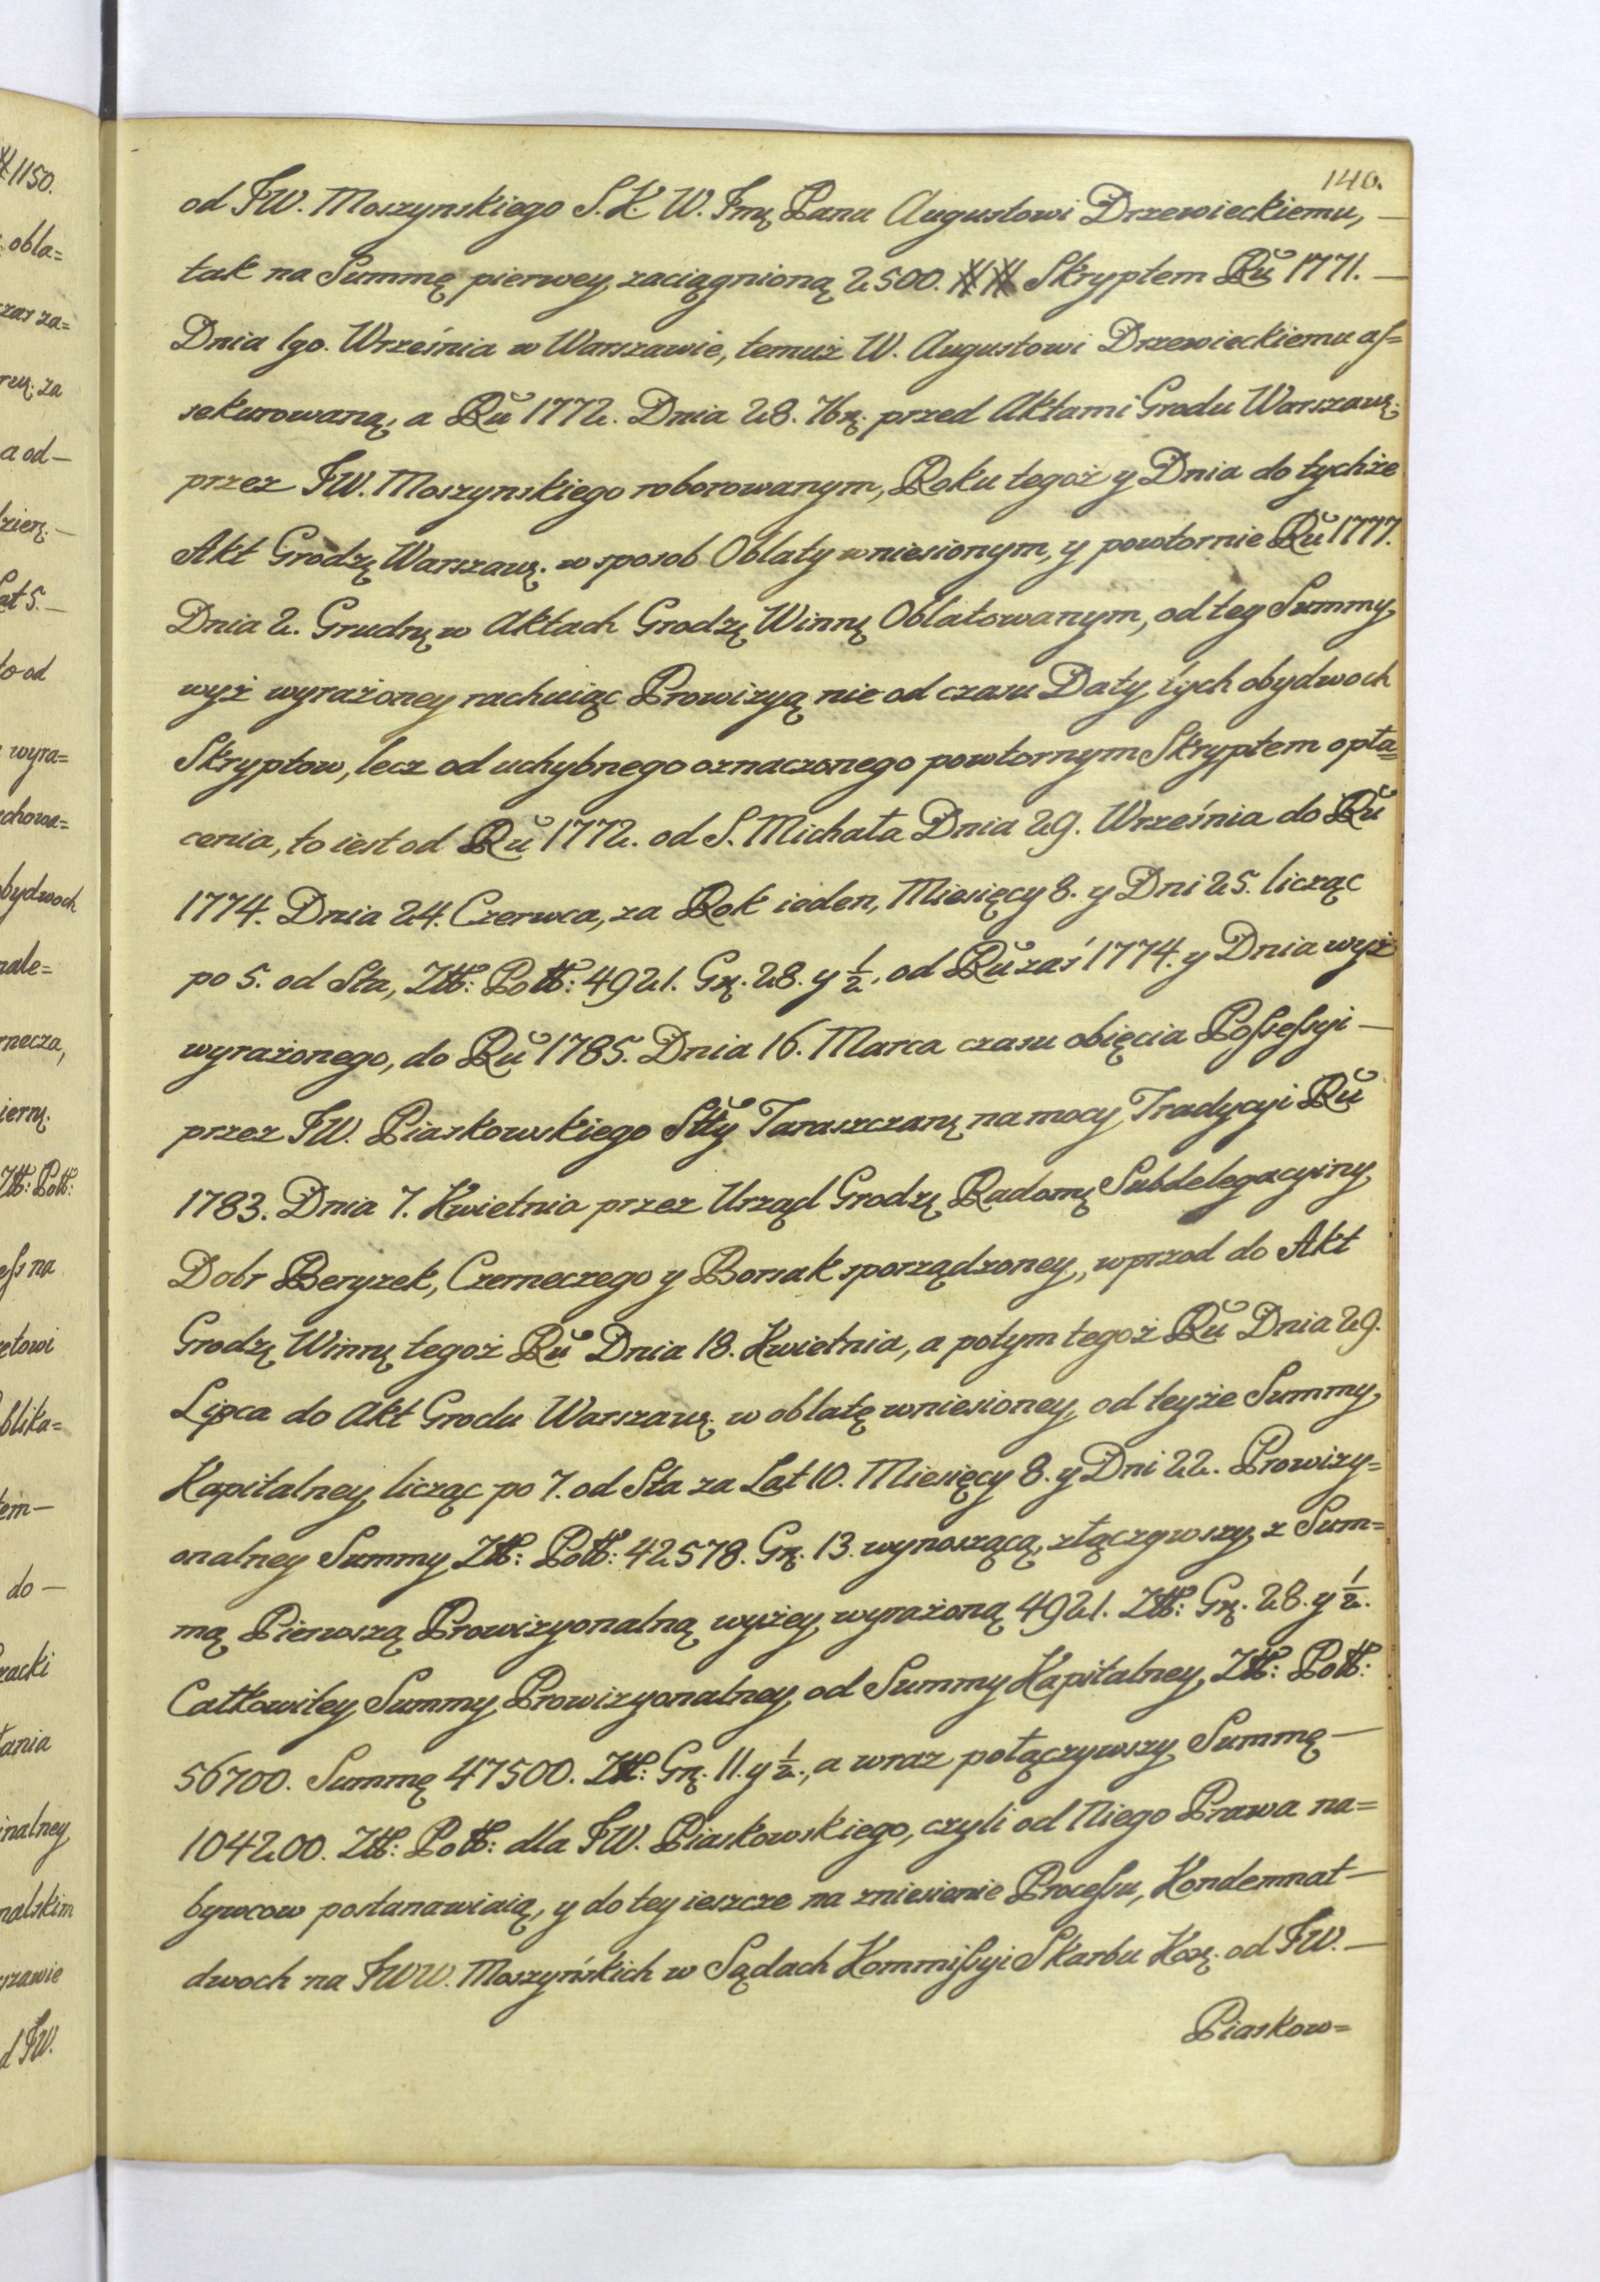 140.
od JW. Moszynskiego S. K. W. Jmę Panu Augustowi Drzewieckiemu, —
tak na Summę pierwey zaciągnioną 2500. ## Skryptem Rŭ 1771. —
Dnia 1go. Września w Warszawie, temuż W. Augustowi Drzewieckiemu as=
sekurowaną, a Rŭ 1772. Dnia 28. 7bę. przed Aktami Grodu Warszawę.
przez JW. Moszynskiego roborowanym, Roku tegoż y Dnia do tychże
Akt Grodzę Warszawę. w sposob Oblaty wniesionym, y powtornie Rŭ 1777.
Dnia 2. Grudnę w Aktach Grodzę Winnę Oblatowanym, od tey Summy
wyż wyrażoney rachuiąc Prowizyą nie od czasu Daty tych obydwoch
Skryptow, lecz od uchybnego oznaczonego powtornym Skryptem opła=
cenia, to iest od Rŭ 1772. od S. Michała Dnia 29. Września do Rŭ
1774. Dnia 24. Czerwca, za Rok ieden, Miesięcy 8. y Dni 25. licząc
po 5. od Sta, Złł: Połł: 4921. Gę. 28. y ½, od Rŭ zaś 1774. y Dnia wyż
wyrażonego, do Rŭ 1785. Dnia 16. Marca czasu obięcia Possessyi —
przez JW. Piaskowskiego Stty Taraszczanę na mocy Tradycyi Rŭ
1783. Dnia 7. Kwietnia przez Urząd Grodzę Radomę Subdelegacyiny
Dobr Beryzek, Czerneczego y Borsak sporządzoney, wprzod do Akt
Grodzę Winnę tegoż Rŭ Dnia 18. Kwietnia, a potym tegoż Rŭ Dnia 29.
Lipca do Akt Grodu Warszawę. w oblatę wniesioney, od teyże Summy
Kapitalney licząc po 7. od Sta za Lat 10. Miesięcy 8. y Dni 22. Prowizy=
onalney Summy Złł: Połł: 42578. Gę. 13. wynoszącą, złączywszy z Sum=
mą Pierwszą Prowizyonalną wyżey wyrażoną 4921. Złł: Gę. 28. y ½.
Całkowitey Summy Prowizyonalney od Summy Kapitalney Złł: Połł:
56700. Summę 47500. Złł: Gę. 11. y ½., a wraz połączywszy Summę —
104200. Złł: Połł: dla JW. Piaskowskiego, czyli od Niego Prawa na=
bywcow postanawiaią, y do tey ieszcze na zniesienie Processu, Kondemnat —
dwoch na JWW. Moszyńskich w Sądach Kommissyi Skarbu Koę. od JW. —
Piaskow=
1150.
obla=
za=
za
a od —
Lat 5. —
od
wyra=
obydwoch
nale=
Złł: Połł:
na
blika=
do —
JW.